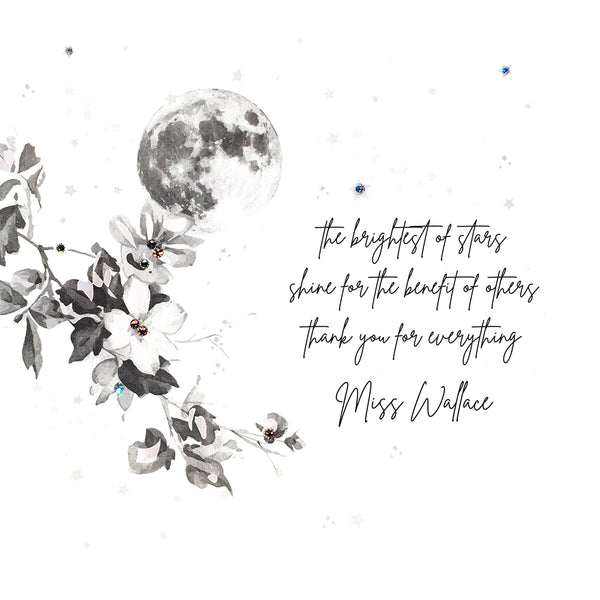 the brightest of stars
shine for the benefit of others
thank you for everything
Miss Wallace